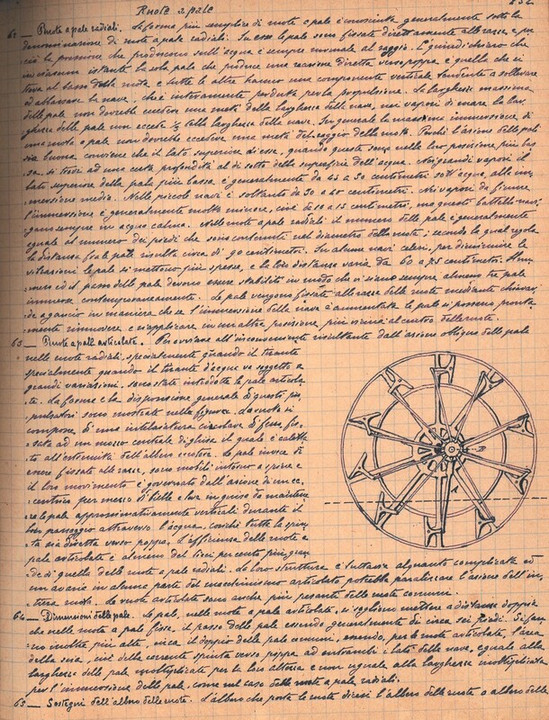 Ruote a pale
62 — Ruote a pale radiali. La forma più semplice di ruote a pale è conosciuta generalmente sotto la
denominazione di ruote a pale radiali. In esse le pale sono fissate direttamente alle razze e per
ciò la pressione che producono sull'acqua è sempre normale al raggio. È quindi chiaro che
in ciascun istante la sola pala che produce una reazione diretta verso poppa, è quella che si
trova al basso della ruota, e tutte le altre hanno una componente verticale tendente a sollevare
ed abbassare la nave, che è interamente perduta per la propulsione. La larghezza massima
delle pale non dovrebbe eccedere una metà della larghezza della nave, nei vapori di mare la lar
ghezza delle pale non eccede ⅓ della larghezza della nave. In generale la massima immersione di
una ruota a pale non dovrebbe eccedere una metà del raggio della ruota. Perché l'azione delle pale
sia buona, conviene che il lato superiore di esse, quando queste sono nella loro posizione più bas
sa, si trovi ad una certa profondità al di sotto della superficie dell'acqua. Nei grandi vapori il
lato superiore della pala più bassa è generalmente da 45 a 50 centimetri sott'acqua, alla im
mersione media. Nelle piccole navi è soltanto da 30 a 40 centimetri. Nei vapori da fiume
l'immersione è generalmente molto minore, cioè 10 a 15 centimetri, ma questi battelli navi
gano sempre in acqua calma. Nelle ruote a pale radiali il numero delle pale è generalmente
eguale al numero dei piedi che sono contenuti nel diametro della ruota; secondo la qual regola
la distanza fra le pale risulta circa di 90 centimetri. In alcune navi celeri, per diminuire le
vibrazioni le pale si mettono più spesse, e la loro distanza varia da 60 a 75 centimetri. Il nu
mero ed il passo delle pale devono essere stabiliti in modo che vi siano sempre almeno tre pale
immerse contemporaneamente. Le pale vengono fissate alle razze delle ruote mediante chiavar
de a gancio in maniera che se l'immersione della nave è aumentata le pale si possono pronta
mente rimuovere e riapplicare in un'altra posizione più vicina al centro delle ruote.
63 — Ruote a pale articolate. Per ovviare all'inconveniente risultante dall'azione obliqua delle pale
nelle ruote radiali, specialmente quando il tirante
specialmente quando il tirante d'acqua va soggetto a
grandi variazioni, sono state introdotte le pale articola
te. La forma e la disposizione generale di questi pro
pulsatori sono mostrate nella figura. La ruota si
compone d'una intelaiatura circolare di ferro, fis
sata ad un mozzo centrale di ghisa il quale è caletta
to all'estremità dell'albero esteriore. Le pale invece di
essere fissate alle razze, sono mobili intorno a perni e
il loro movimento è governato dall'azione di un ec
centrico per mezzo di bielle e leve in guisa da mantene
re le pale approssimativamente verticali durante il
loro passaggio attraverso l'acqua, cosicché tutta la spin
ta sia diretta verso poppa. L'efficienza delle ruote a
pale articolate è almeno del dieci per cento più gran
de di quella delle ruote a pale radiali. La loro struttura è tuttavia alquanto complicata ed
un'avaria in alcuna parte del macchinismo articolato potrebbe paralizzare l'azione dell'in
tera ruota. Le ruote articolate sono anche più pesanti delle ruote comuni.
64 — Dimensioni delle pale. Le pale, nelle ruote a pale articolate, si sogliono mettere a distanza doppia
che nelle ruote a pale fisse, il passo delle pale essendo generalmente di circa sei piedi. Si fan
no inoltre più alte, circa il doppio delle pale comuni, essendo, per le ruote articolate, l'area
della scia, cioè della corrente spinta verso poppa ad entrambi i lati della nave, eguale alla
larghezza delle pale moltiplicata per la loro altezza e non uguale alla larghezza moltiplicata
per l'immersione delle pale, come nel caso delle ruote a pale radiali.
65 — Sostegni dell'albero delle ruote. L'albero che porta le ruote dicesi l'albero delle ruote o albero delle